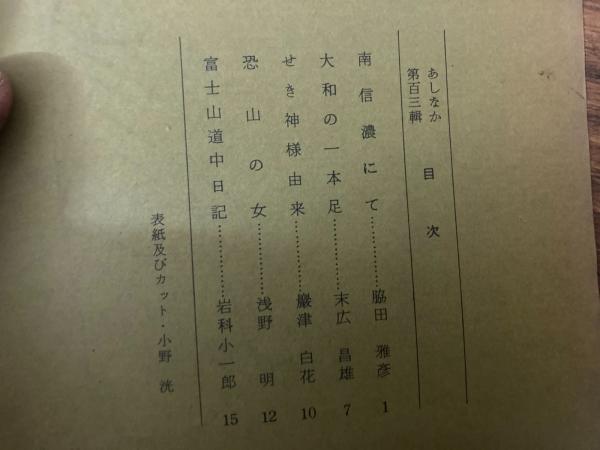 あしなか
第百三輯
目次
南信濃にて……………脇田 雅彦 1
大和の一本足…………末広 昌雄 7
せき神様由来…………巌津 白花 10
恐山の女………………浅野 明 12
富士山道中日記………岩科小一郎 15
表紙及びカット・小野 洸